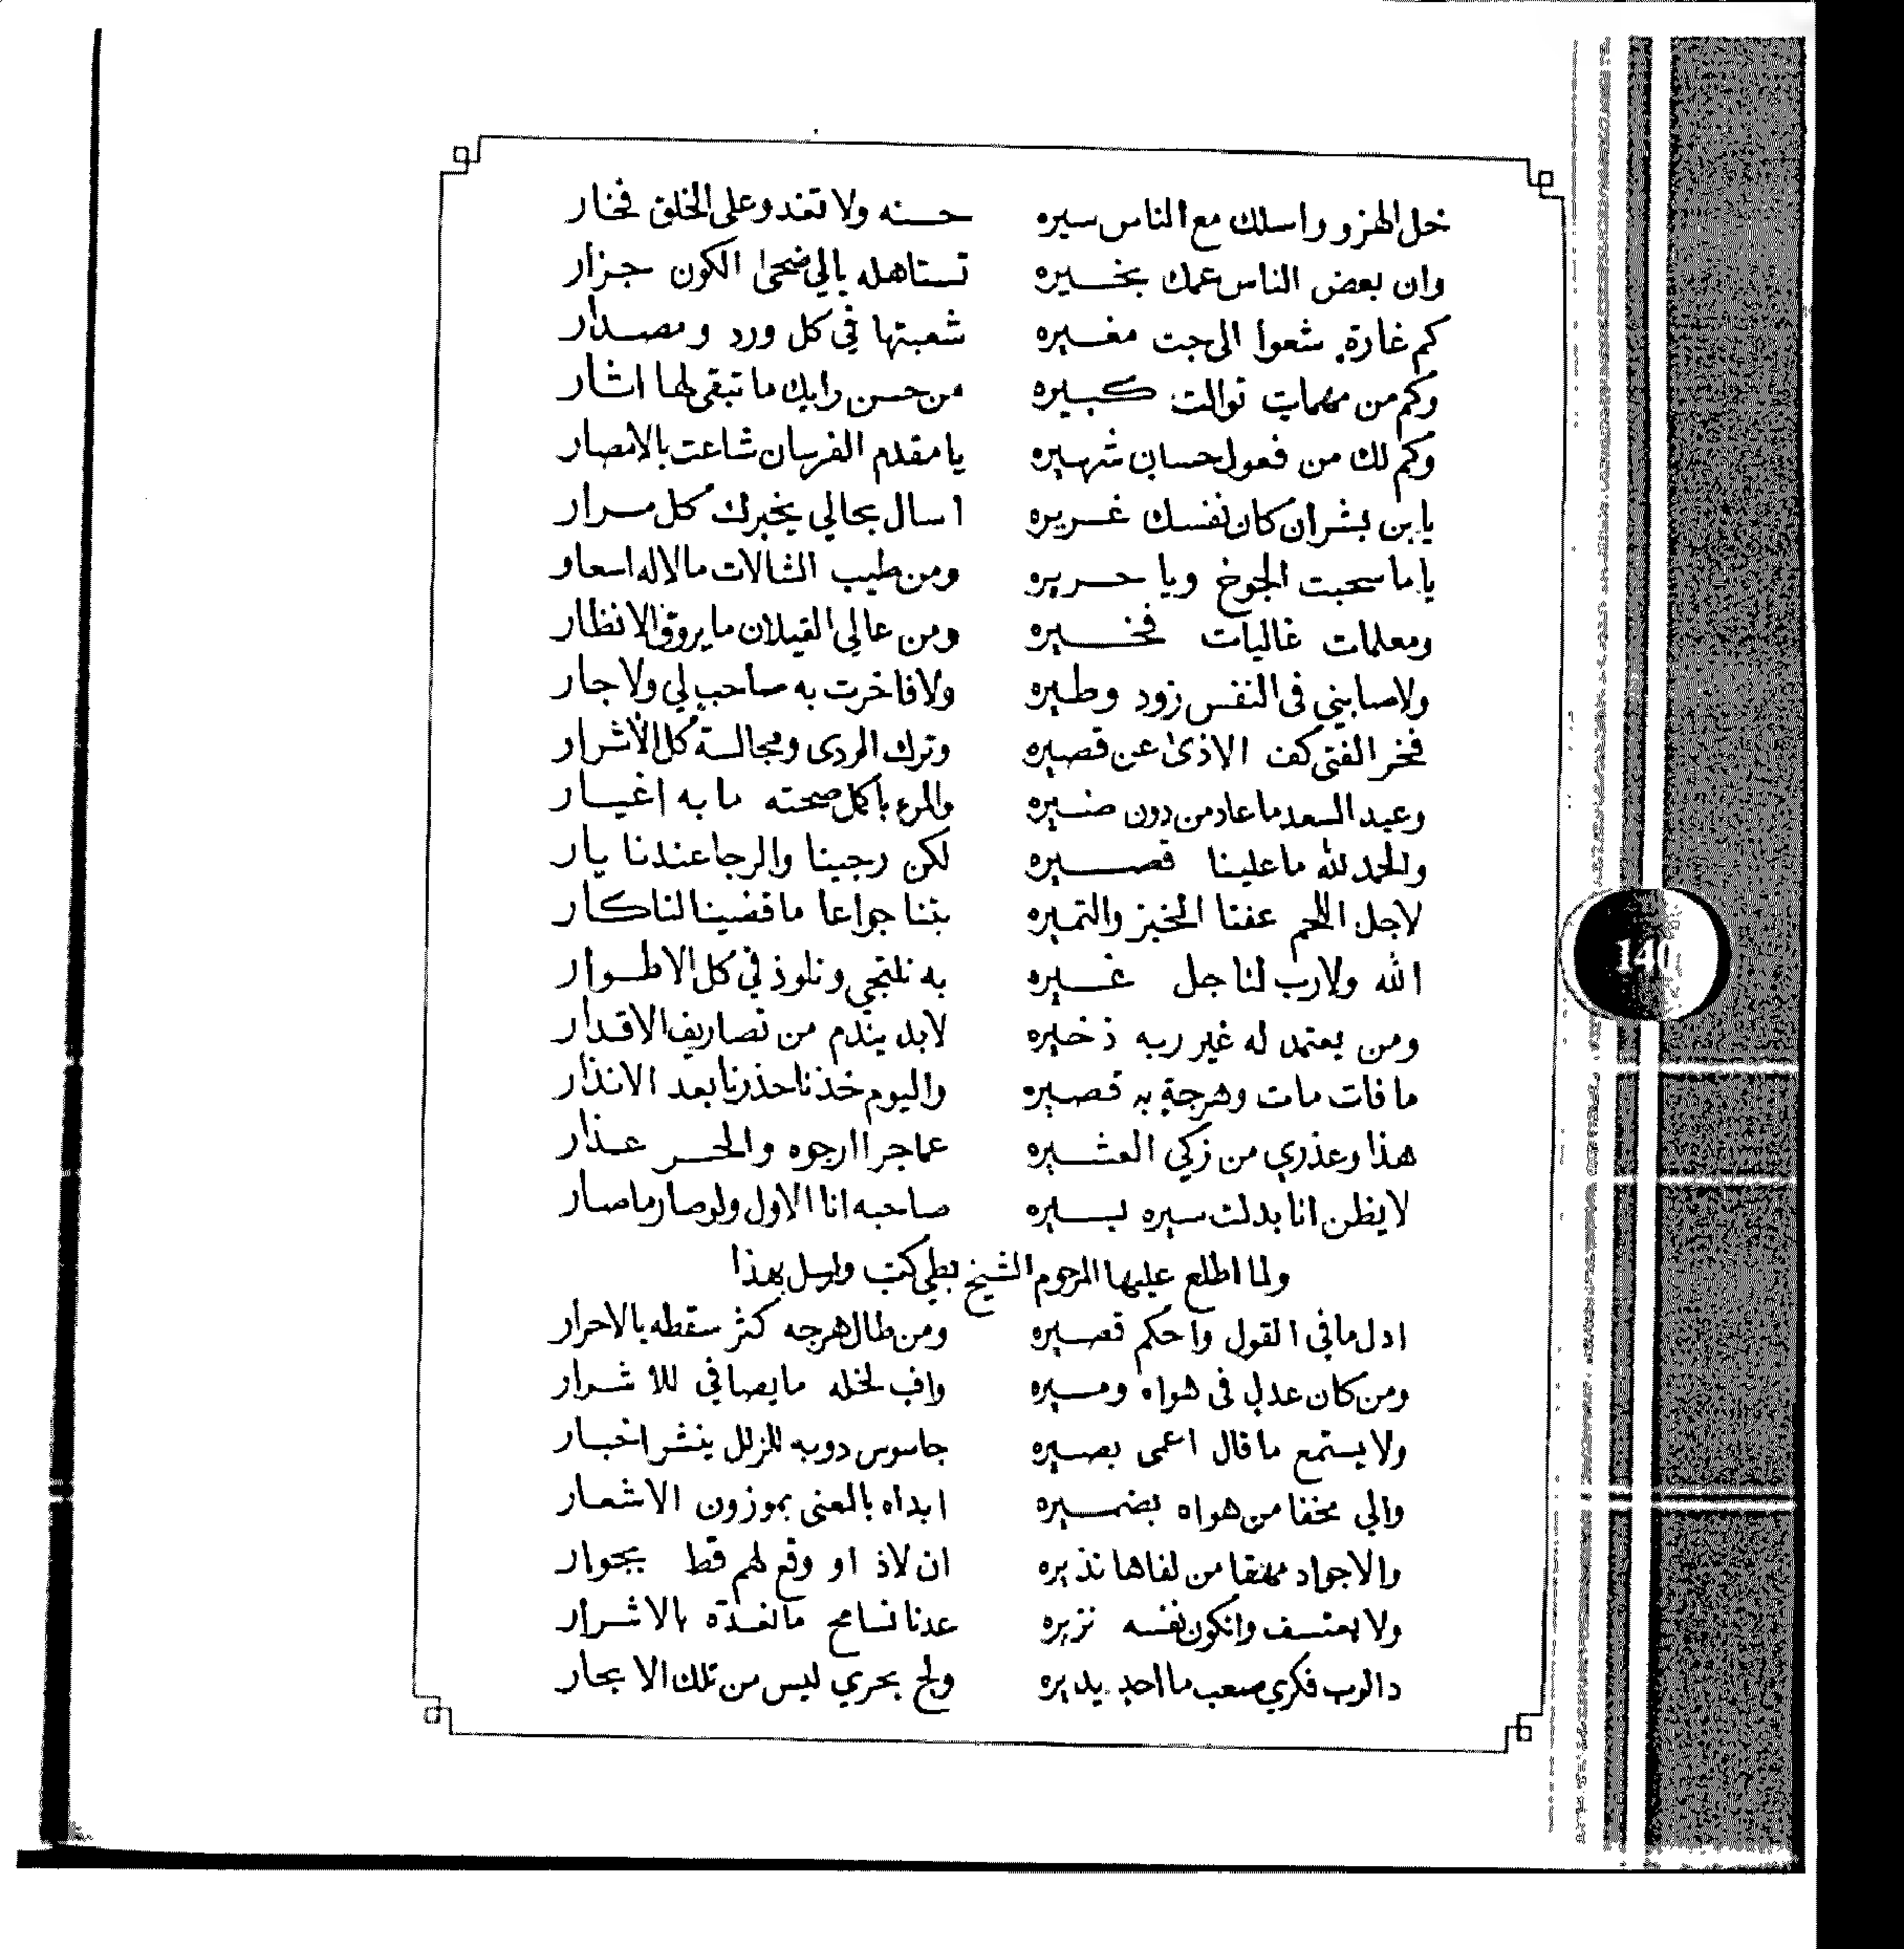 خل الهزو واسلك مع الناس سيره حسنه ولا تغدو على الخلق فخار
وان بعض الناس عمك بخيره تستاهله يالي ضحى الكون جزار
كم غارة شعوا الى جت مغيره شعبتها في كل ورد ومصدار
وكم من مهمات توالت كبيره من حسن رايك ما تبقى لها اثار
وكم لك من فعول حسان شهيره يا مقدم الفرسان شاعت بالامصار
يا بن بشر ان كان نفسك غريره اسال بحالي يخبرك كل مرار
يا ما سحبت الجوخ ويا حريره ومن طيب الشالات ما لاله اسعار
ومعلمات غاليات فخيره ومن عالي القيلان ما يروق الانظار
ولا صابني في النفس زود وطيره ولا فاخرت به صاحب لي ولا جار
فخر الفتى كف الاذى عن قصيره وترك الردى ومجالسة كل الأشرار
وعيد السعد ما عاد من دون ضيره والمرء باكمل صحته ما به اغيار
والحمد لله ما علينا قصيره لكن رجينا والرجا عندنا يار
لاجل اللحم عفنا الخبز والتميره بتنا جواعا ما قضينا لنا كار
الله ولا رب لنا جل غيره به نلتجي ونلوذ في كل الاطوار
ومن يعتمد له غير ربه ذخيره لابد يندم من تصاريف الاقدار
ما فات مات وهرجة به قصيره واليوم خذنا حذرنا بعد الانذار
هذا وعذري من زكي العشيره عما جرا ارجوه والحر عذار
لا يظن انا بدلت سيره بسيره صاحبه انا الاول ولو صار ما صار
ولما اطلع عليها المرحوم الشيخ بطي كتب وارسل بهذا
ادل ما في القول واحكم قصيره ومن طال هرجه كثر سقطه بالاحرار
ومن كان عدل في هواه ومسيره واف لخله ما يصافي للاشرار
ولا يستمع ما قال اعمى بصيره جاسوس دوبه للزلل ينشر اخبار
والي مخفا من هواه بضميره ابداه بالمعنى بموزون الاشعار
والاجواد مهتقا من لفاها نذيره ان لاذ او وقع لهم قط بجوار
ولا يعتسف وانكون نفسه نزيره عدنا نسامح ما نغدة بالاشرار
دالوب فكري صعب ما احد يديره ولج بحري ليس من تلك الابحار
140